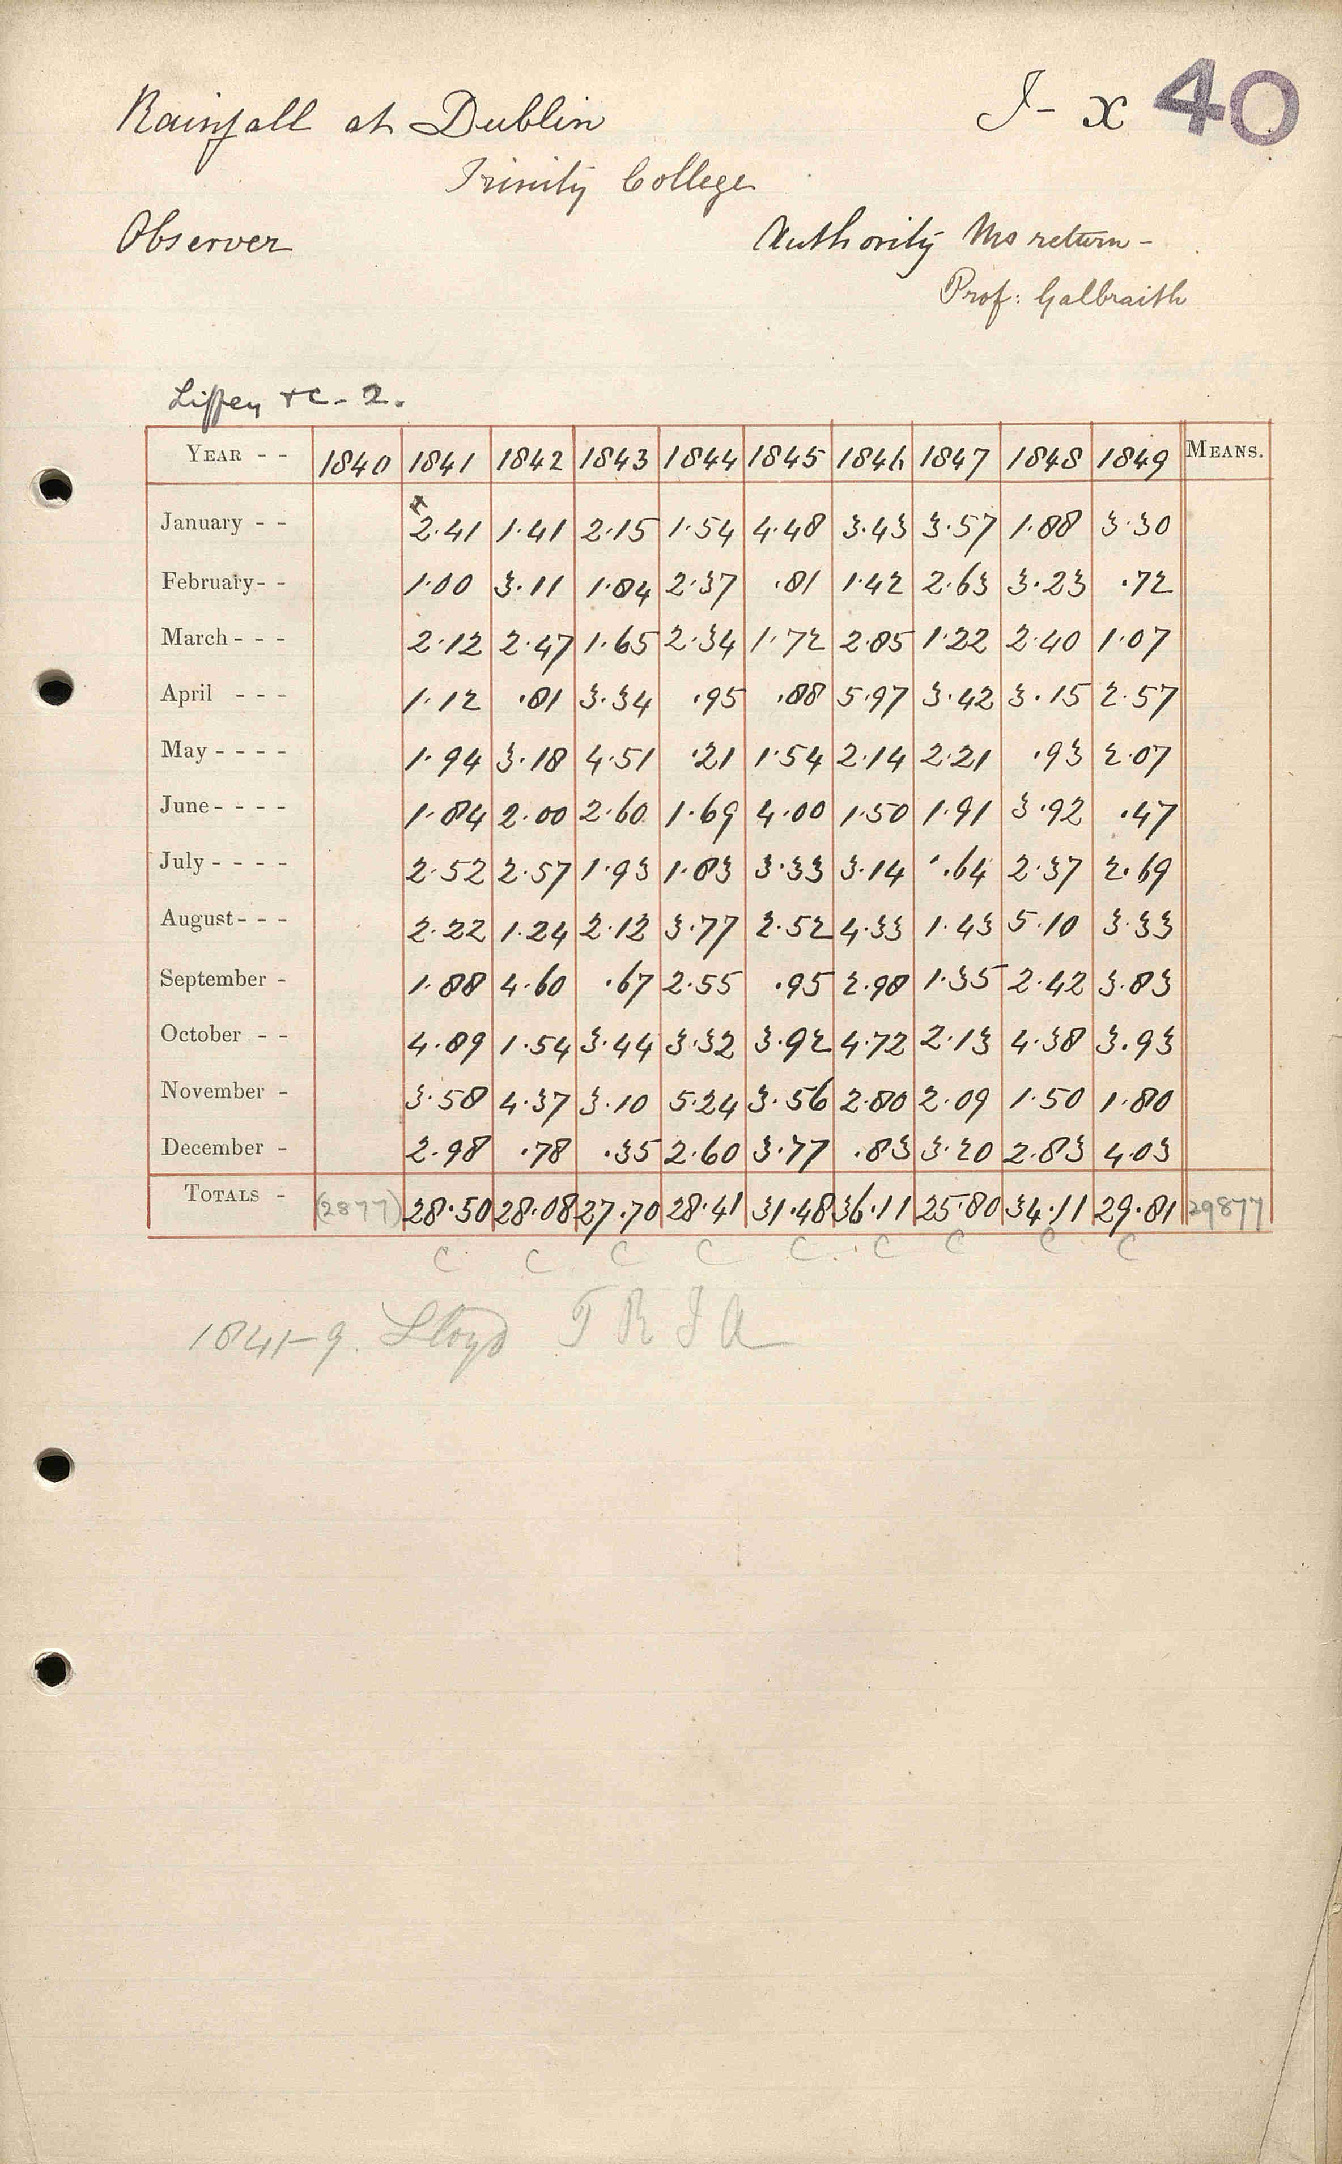 I - x 40
Rainfall at Dublin
Trinity College
Observer Authority Ms return -
Prof: Galbraith
Liffey &c - 2.
YEAR - - 1840 1841 1842 1843 1844 1845 1846 1847 1848 1849 MEANS.
January - - 2.41 1.41 2.15 1.54 4.48 3.43 3.57 1.88 3.30
February - - 1.00 3.11 1.84 2.37 .81 1.42 2.63 3.23 .72
March - - - 2.12 2.47 1.65 2.34 1.72 2.85 1.22 2.40 1.07
April - - - 1.12 .81 3.34 .95 .88 5.97 3.42 3.15 2.57
May - - - - 1.94 3.18 4.51 .21 1.54 2.14 2.21 .93 2.07
June - - - - 1.84 2.00 2.60 1.69 4.00 1.50 1.91 3.92 .47
July - - - - 2.52 2.57 1.93 1.83 3.33 3.14 .64 2.37 2.69
August - - - 2.22 1.24 2.12 3.77 2.52 4.33 1.43 5.10 3.33
September - 1.88 4.60 .67 2.55 .95 2.98 1.35 2.42 3.83
October - - 4.89 1.54 3.44 3.32 3.92 4.72 2.13 4.38 3.93
November - 3.58 4.37 3.10 5.24 3.56 2.80 2.09 1.50 1.80
December - 2.98 .78 .35 2.60 3.77 .83 3.20 2.83 4.03
TOTALS - (2877) 28.50 28.08 27.70 28.41 31.48 36.11 25.80 34.11 29.81 29877
C C C C C C C C C
1841-9. Lloyd T R I A